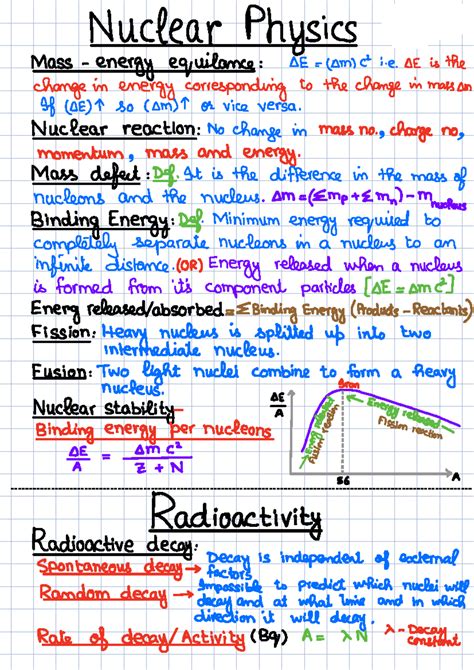 Nuclear Physics
Mass - energy equilance: ΔE = (Δm) c² i.e. ΔE is the
change in energy corresponding to the change in mass Δm
If (ΔE)↑ so (Δm)↑ or vice versa.
Nuclear reaction: No change in mass no., charge no,
momentum, mass and energy.
Mass defect: Def. It is the difference in the mass of
nucleons and the nucleus. Δm = (Σmp + Σmn) - m nucleus
Binding Energy: Def. Minimum energy required to
completely separate nucleons in a nucleus to an
infinite distance. (OR) Energy released when a nucleus
is formed from it's component particles [ΔE = Δm c²]
Energ released/absorbed = Σ Binding Energy (Products - Reactants)
Fission: Heavy nucleus is splitted up into two
intermediate nucleus.
Fusion: Two light nuclei combine to form a heavy
nucleus.
Nuclear stability
Binding energy per nucleons
ΔE/A = Δm c²/Z + N
ΔE/A
Iron
Energy released
Fission reaction
Energy released
56
A
Radioactivity
Radioactive decay:
Spontaneous decay → Decay is independent of external
factors
Random decay → Impossible to predict which nuclei will
decay and at what time and in which
direction it will decay.
Rate of decay/Activity (Bq) A = λN λ - Decay
constant